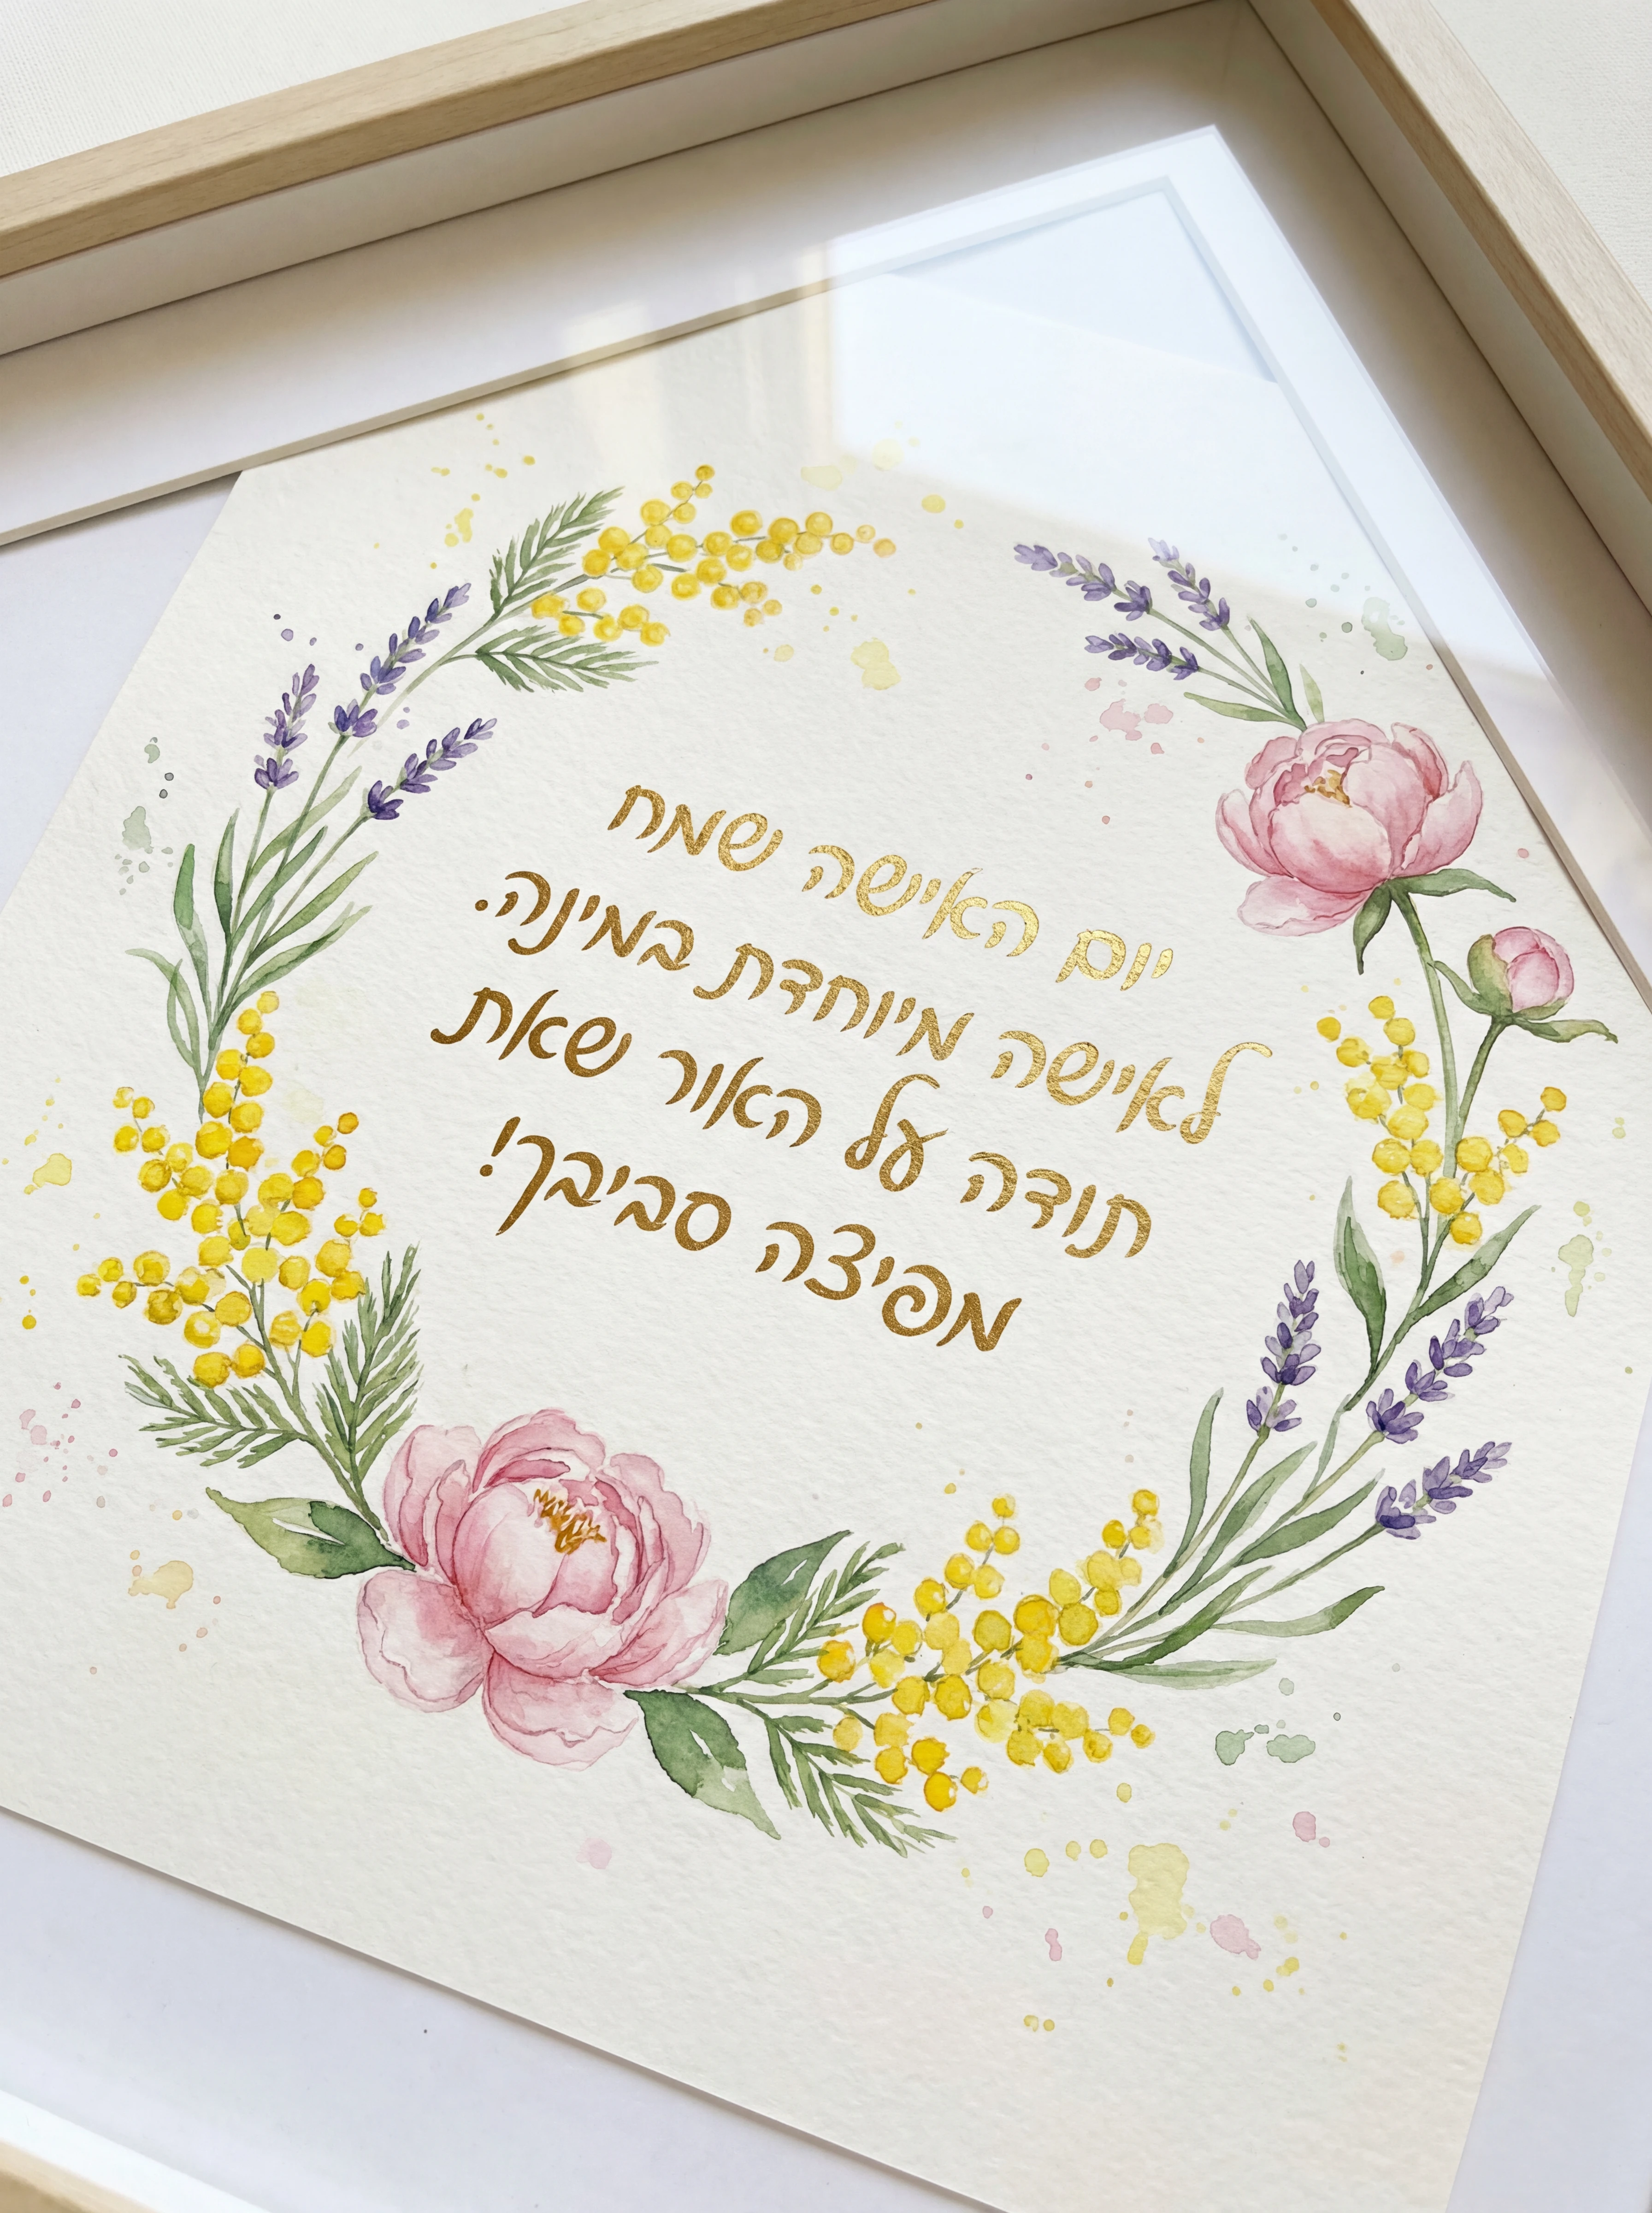 יום האישה שמח
לאישה מיוחדת במינה.
תודה על האור שאת
מפיצה סביבך!